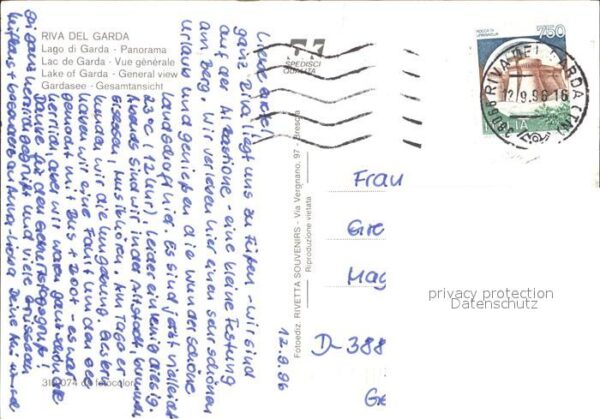 RIVA DEL GARDA
Lago di Garda - Panorama
Lac de Garda - Vue générale
Lake of Garda - General view
Gardasee - Gesamtansicht
SPEDISCI
QUALITÀ
750
38066 RIVA DEL GARDA (TN)
12.9.96 16
12.9.96
ganz Riva liegt uns zu Füßen - wir sind
auf der - eine kleine Festung
am Berg. Wir verleben hier einen sehr schönen
Urlaub und genießen die wunderschöne
Landschaft hier. Es sind jetzt vielleicht
23°C (12 Uhr), leider ein wenig diesig.
Abends sind wir in der Altstadt, bummeln,
Essen, Musik hören. Am Tage er-
kunden wir die Umgebung. Gestern
haben wir eine Fahrt um den See
gemacht mit Bus + Boot - es war
herrlich, aber wir waren ganz schön
Danke für den
Sei ganz herzlich gegrüßt und viele Grüße an
Deine
Fotoediz. RIVETTA SOUVENIRS - Via Vergnano, 97 - Brescia
Riproduzione vietata
Frau
Gre
Mag
D-388
Ge
privacy protection
Datenschutz
da fotocolor